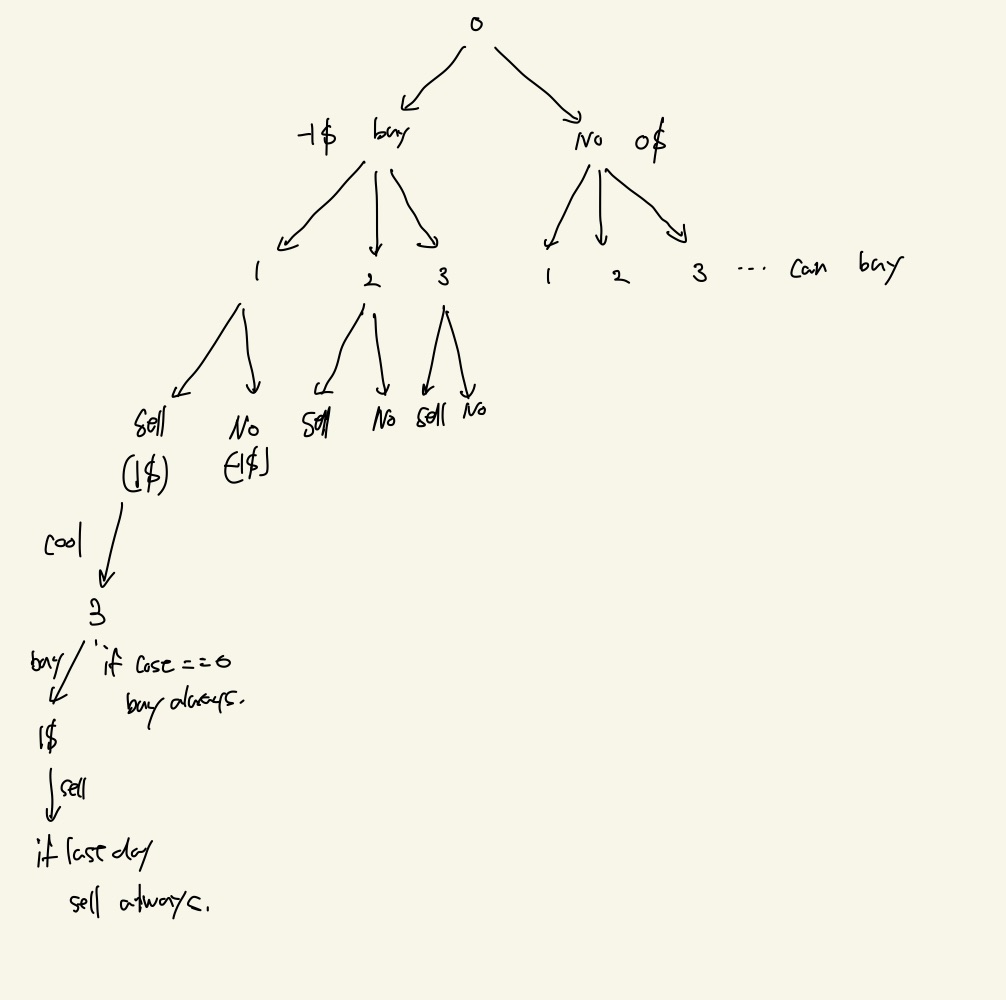 0
-1$ buy No 0$
1 2 3 1 2 3 ... can buy
sell No sell No sell No
(1$) (-1$)
cool
3
buy if cose == 0
buy always.
1$
sell
if last day
sell always.